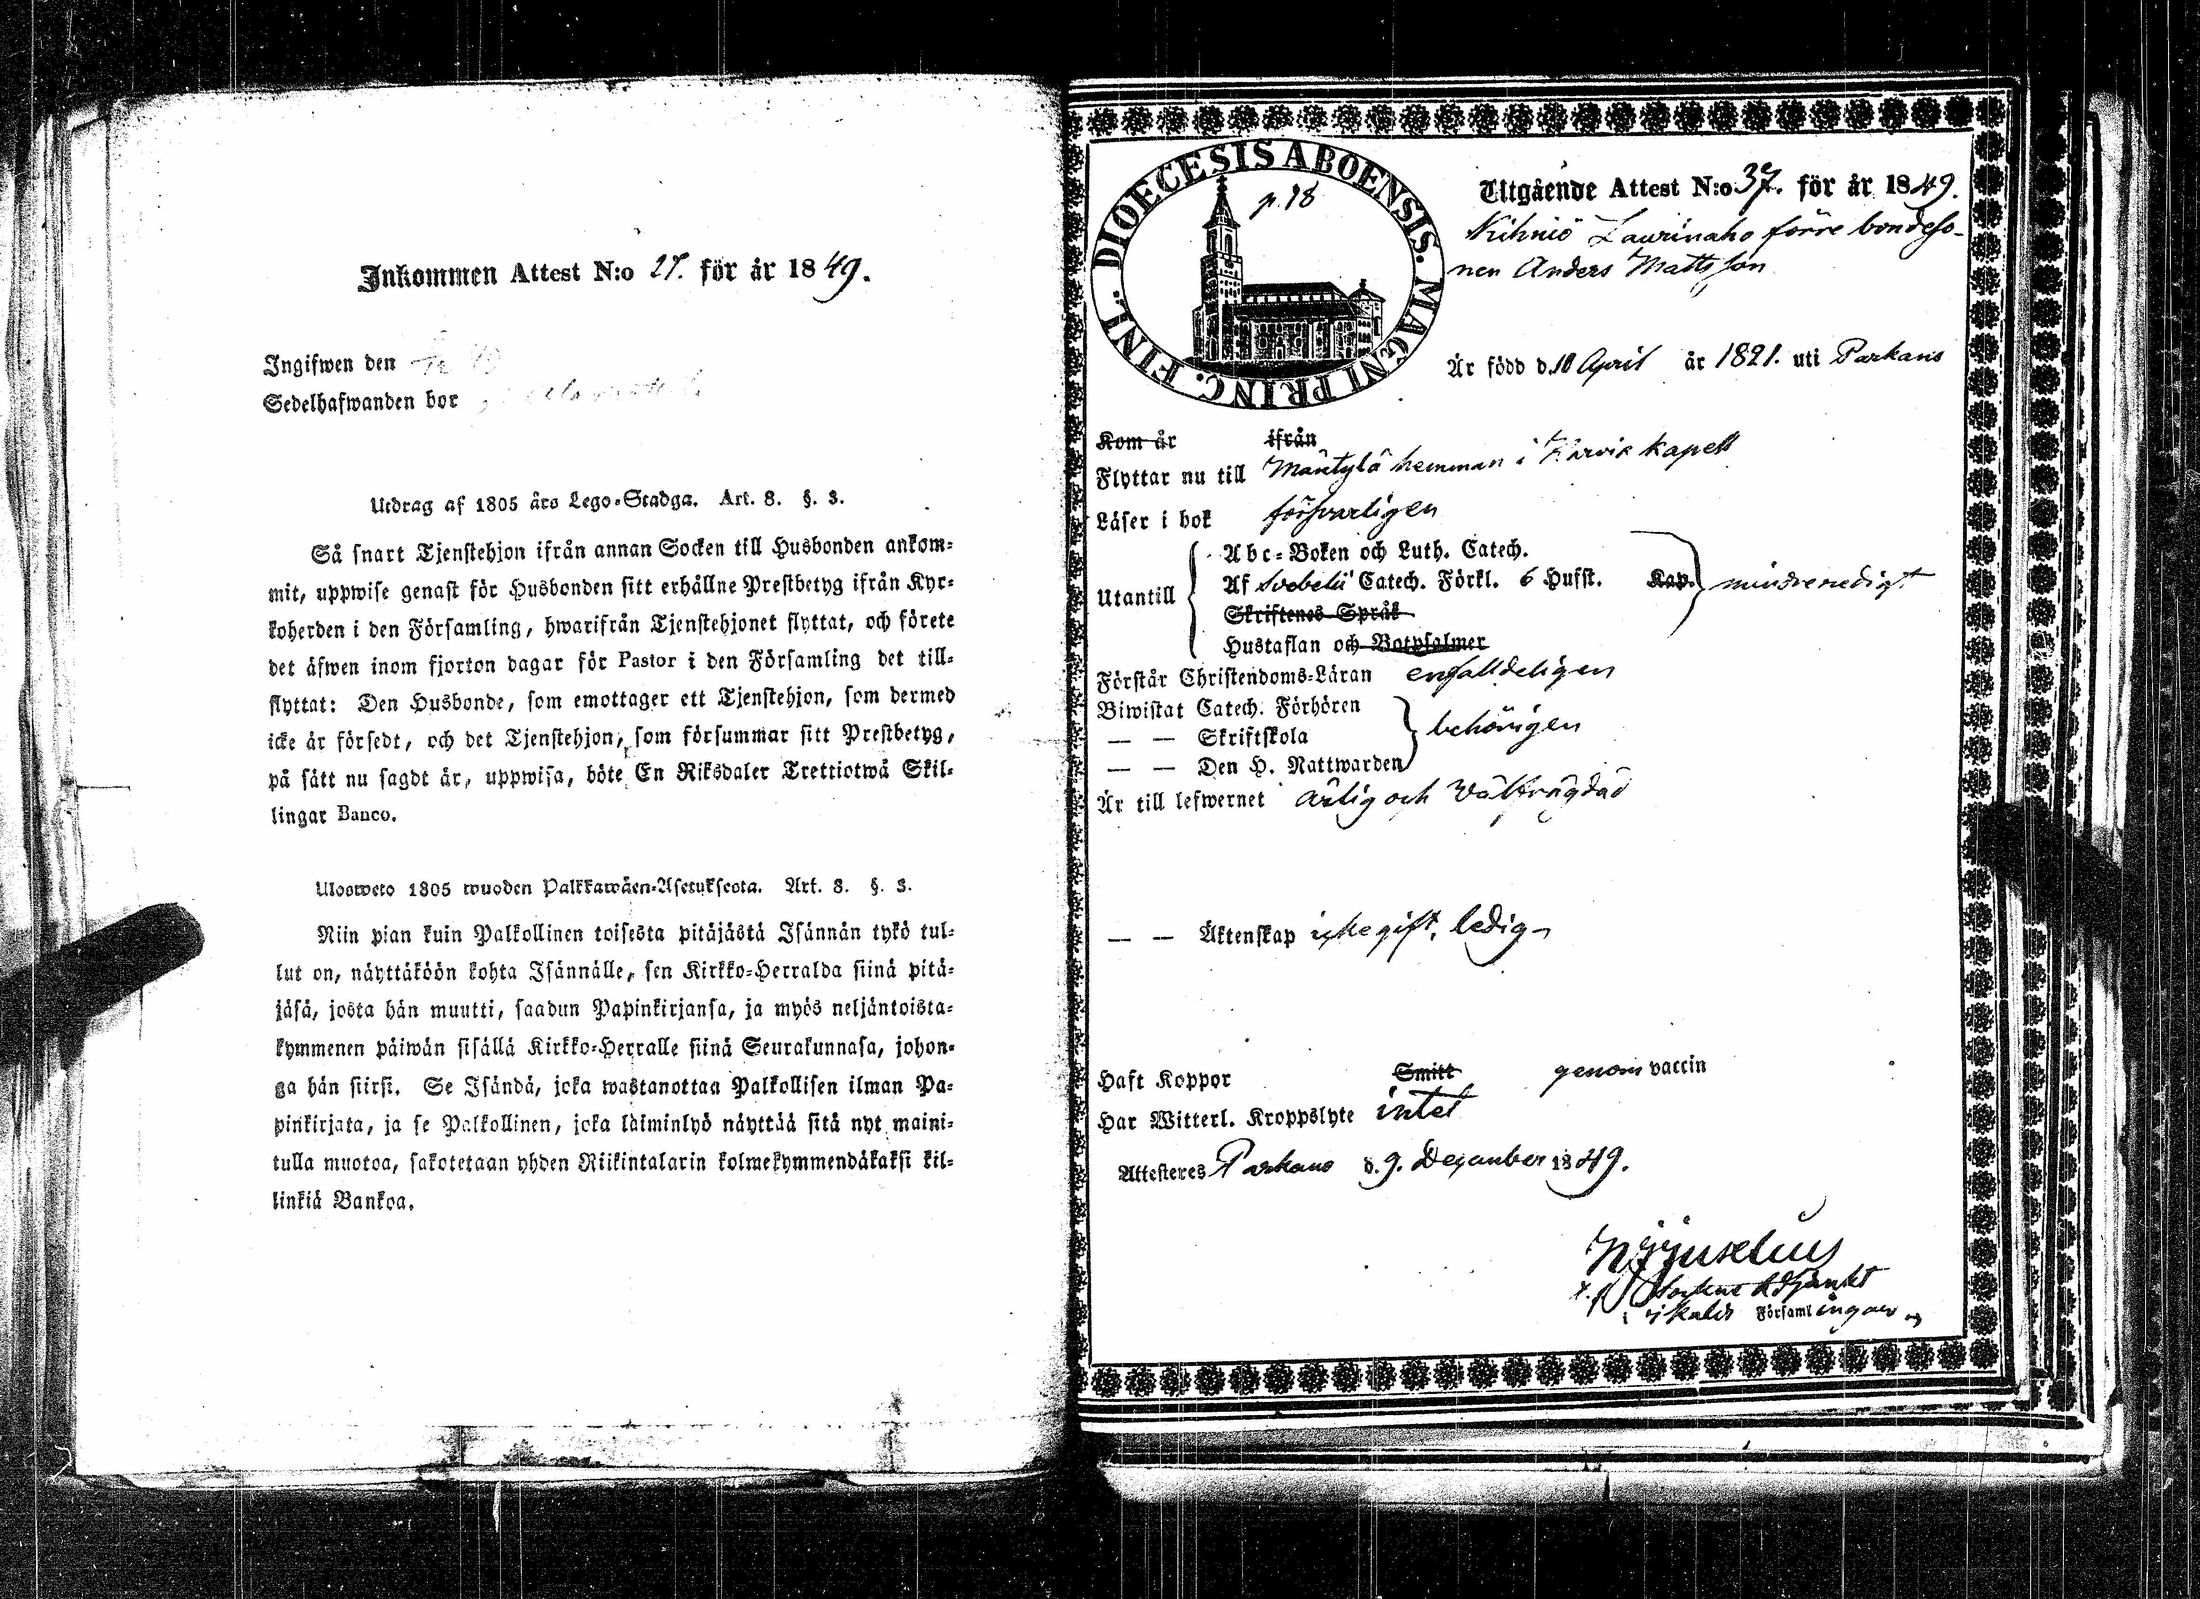 Inkommen Attest N:o 27. för år 1849.
Ingifwen den
Sedelhafwanden bor
Utdrag af 1805 års Lego-Stadga. Art. 8. §. 3.
Så snart Tjenstehjon ifrån annan Socken till Husbonden ankom-
mit, uppwise genast för Husbonden sitt erhållne Prestbetyg ifrån Kyr-
koherden i den Församling, hwarifrån Tjenstehjonet flyttat, och förete
det äfwen inom fjorton dagar för Pastor i den Församling det till-
flyttat: Den Husbonde, som emottager ett Tjenstehjon, som dermed
icke är försedt, och det Tjenstehjon, som försummar sitt Prestbetyg,
på sätt nu sagdt är, uppwisa, böte En Riksdaler Trettiotwå Skil-
lingar Banco.
Ulosweto 1805 wuoden Palkkawäen-Asetuksesta. Art. 8. §. 3.
Niin pian kuin Palkollinen toisesta pitäjästä Isännän tykö tul-
lut on, näyttäköön kohta Isännälle, sen Kirkko-Herralda siinä pitä-
jäsä, josta hän muutti, saadun Papinkirjansa, ja myös neljäntoista-
kymmenen päiwän sisällä Kirkko-Herralle siinä Seurakunnasa, johon-
ga hän siirsi. Se Isändä, joka wastanottaa Palkollisen ilman Pa-
pinkirjata, ja se Palkollinen, joka läiminlyö näyttää sitä nyt maini-
tulla muotoa, sakotetaan yhden Riikintalarin kolmekymmendäkaksi kil-
linkiä Bankoa.
DIOECESIS ABOENSIS. MAGNI PRINC. FINL.
p. 18
Utgående Attest N:o 37. för år 1849.
Kihniö Laurinaho förre bondeso-
nen Anders Mattsson
Är född d. 10 April år 1821. uti Parkano
Kom år ifrån
Flyttar nu till Mäntylä hemman i Karvia kapell
Läser i bok försvarligen
Utantill
Abc-Boken och Luth. Catech.
Af Svebelii Catech. Förkl. 6 Hufst. Kap. mindre redigt
Skriftenes Språk
Hustaflan och Botpsalmer
Förstår Christendoms-Läran enfalldeligen
Biwistat Catech. Förhören
— — Skriftskola behörigen
— — Den H. Nattwarden
Är till lefwernet ärlig och välfrägdad
— — Äktenskap icke gift, ledig
Haft Koppor Smitt genom vaccin
Har Witterl. Kroppslyte intet
Attesteres Parkano d. 9. December 1849.
Församlingar